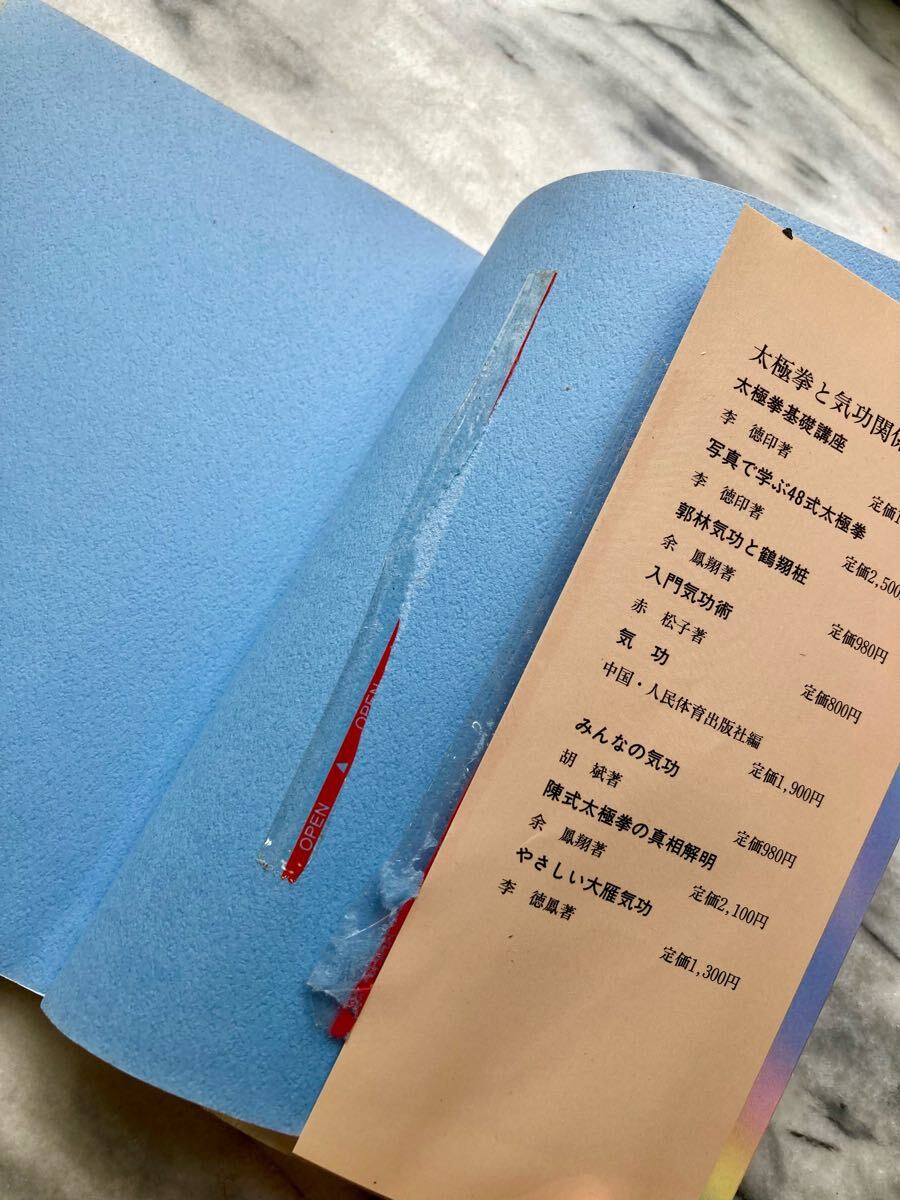 太極拳と気功関係
太極拳基礎講座
李 徳印著
定価1
写真で学ぶ48式太極拳
李 徳印著
定価2,500
郭林気功と鶴翔桩
余 鳳翔著
定価980円
入門気功術
赤 松子著
定価800円
気 功
中国・人民体育出版社編
定価1,900円
みんなの気功
胡 斌著
定価980円
陳式太極拳の真相解明
余 鳳翔著
定価2,100円
やさしい大雁気功
李 徳鳳著
定価1,300円
OPEN
OPEN